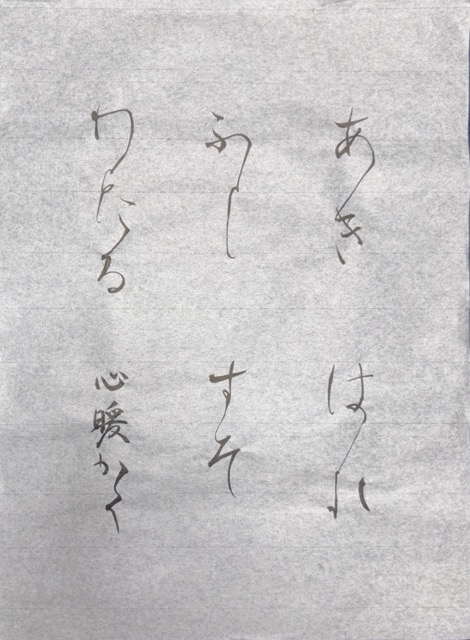 あき
はれ
ふし
すそ
わたる
心暖かく